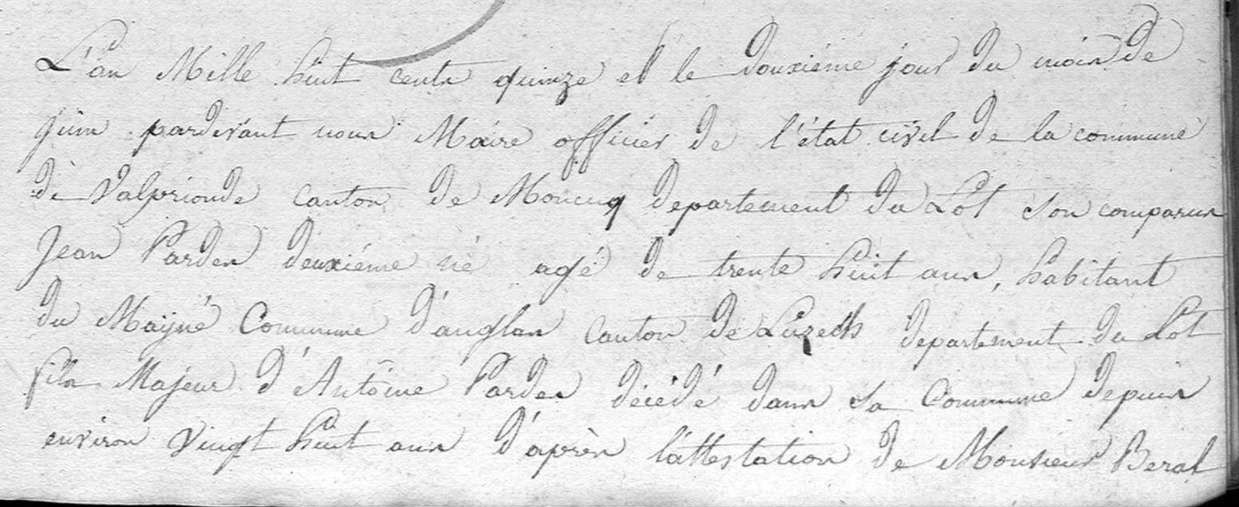 L'an Mille huit cents quinze et le douxième jour du mois de
juin pardevant nous Maire officier de l'état civil de la commune
de Valprionde canton de Moncuq departement du Lot son comparus
Jean Pardes deuxiéme né agé de trente huit ans, habitant
du Mayné Commune d'anglas canton de Luzech departement du Lot
fils Majeur d'Antôine Pardes décédé dans sa Commune depuis
environ Vingt huit ans d'après l'attestation de Monsieur Beral